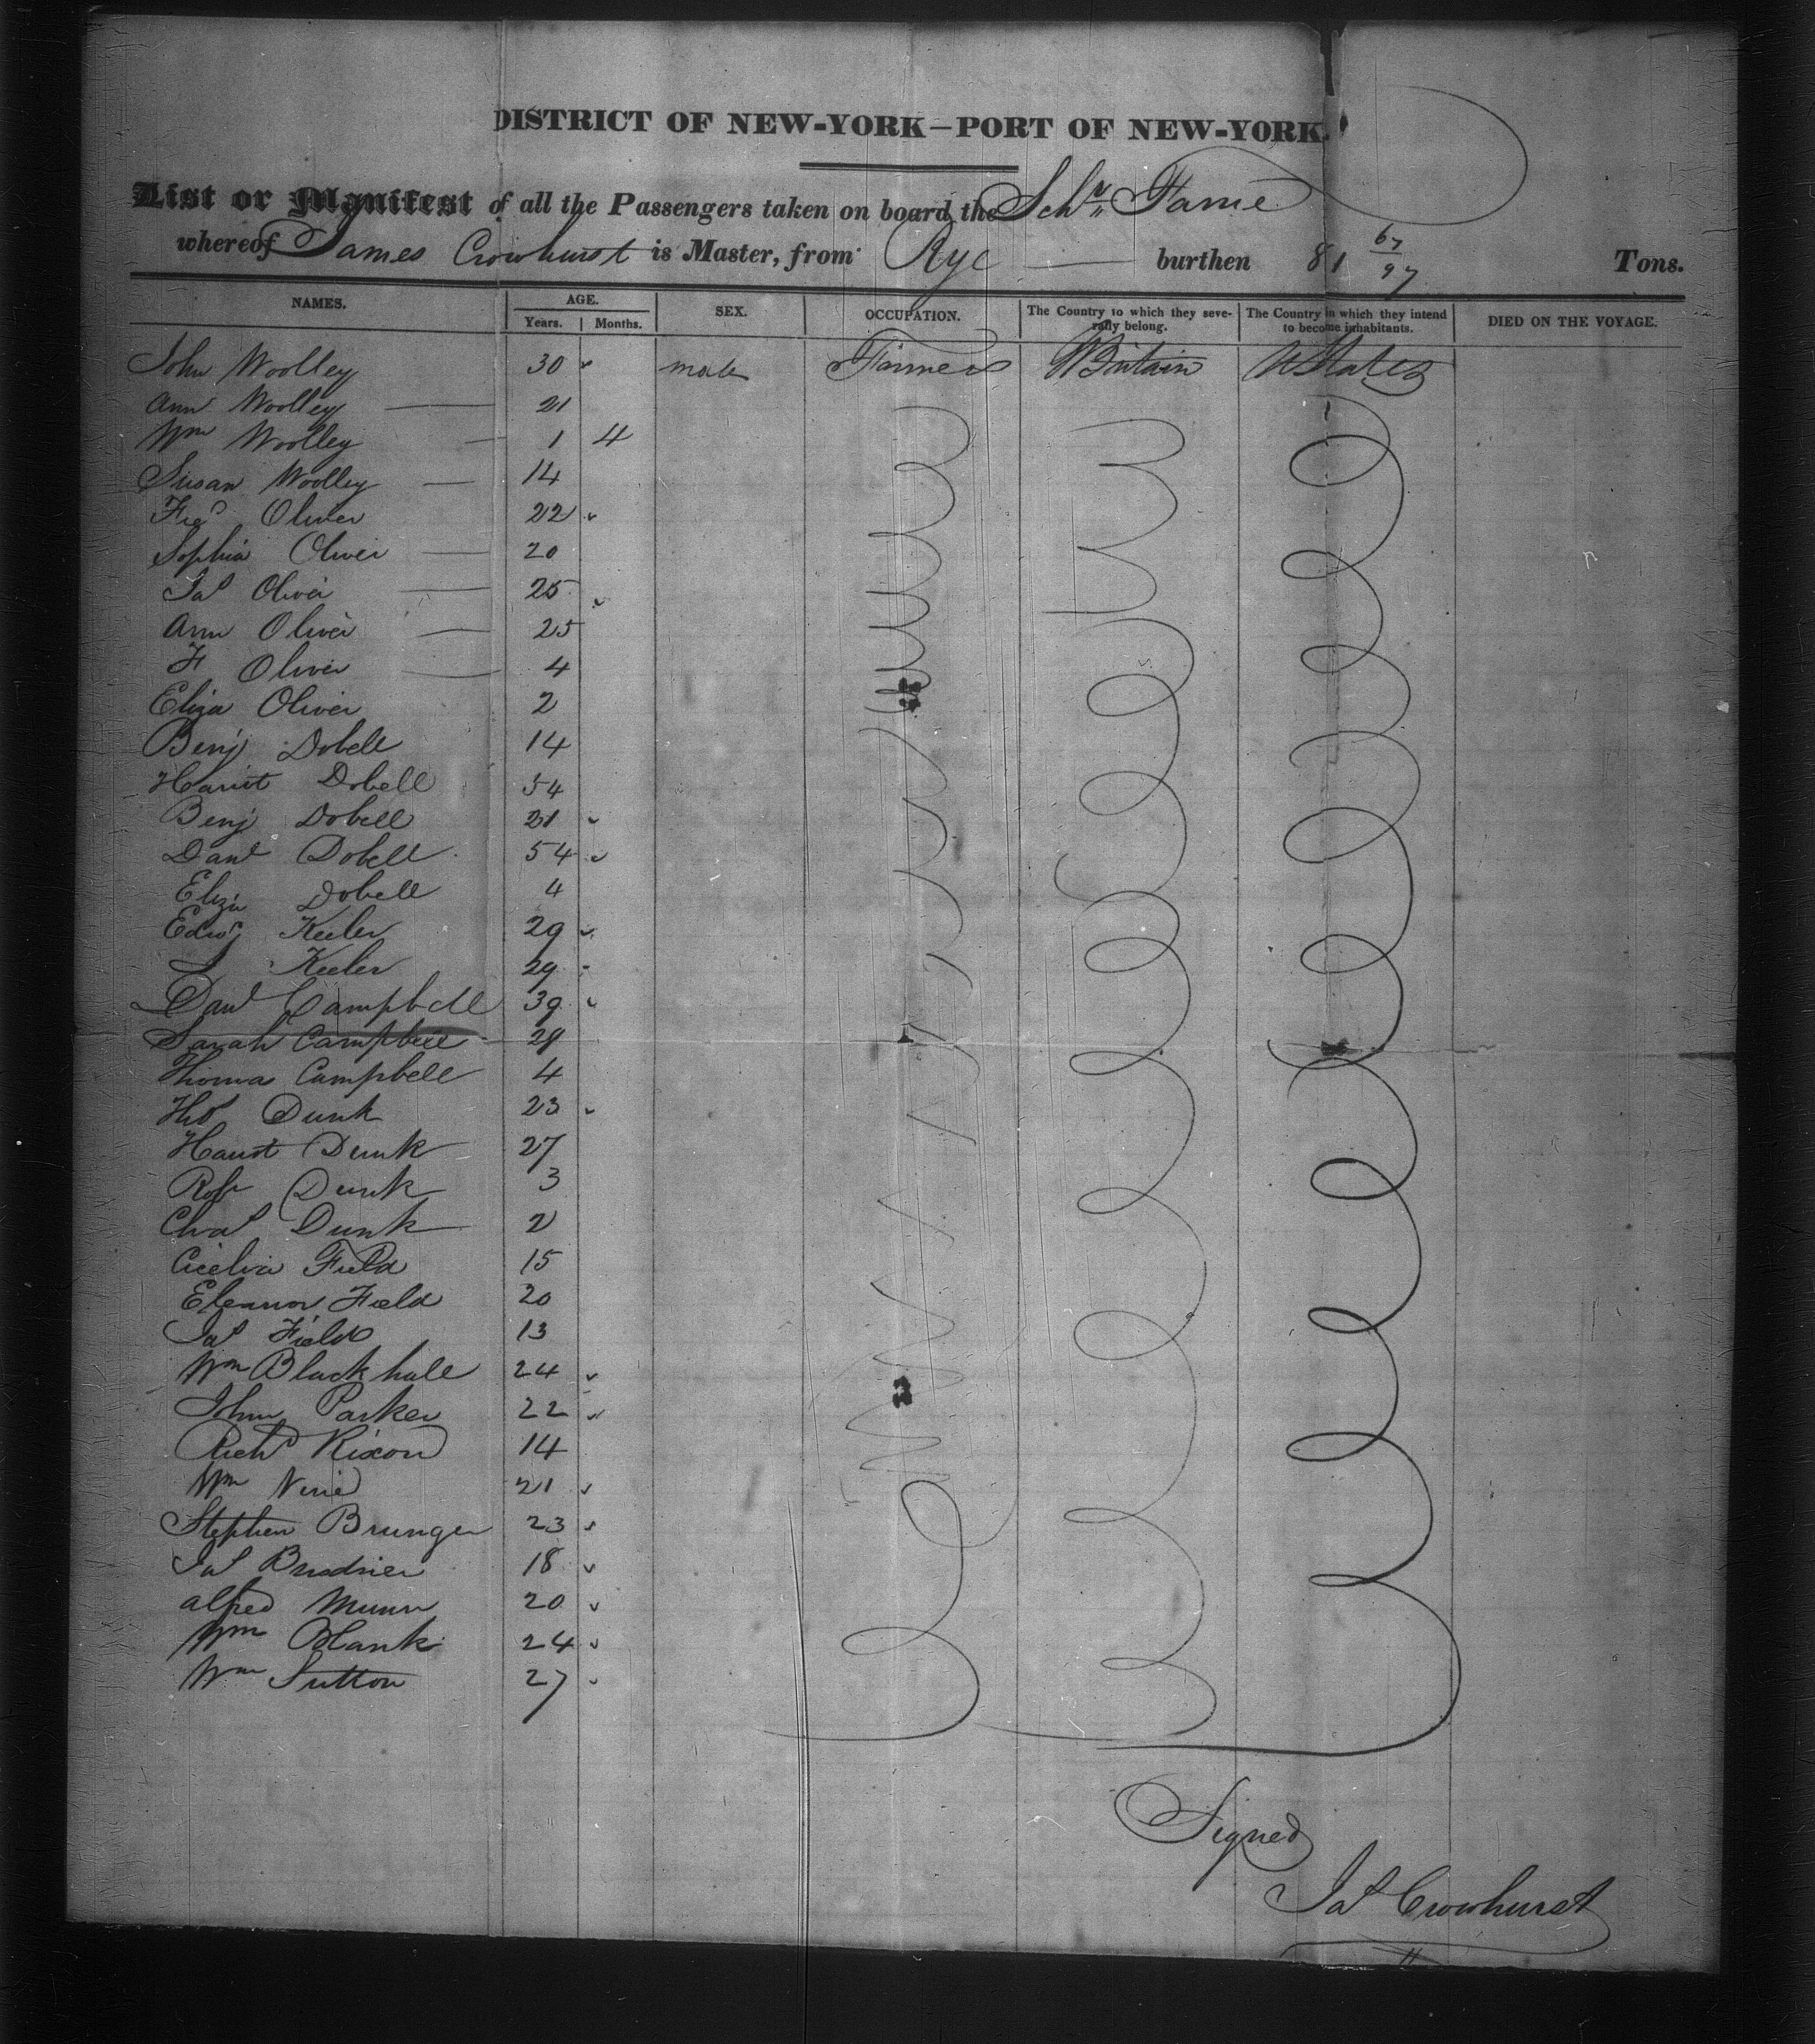 DISTRICT OF NEW-YORK—PORT OF NEW-YORK.
List or Manifest of all the Passengers taken on board the Schr Fame
whereof James Crowhurst is Master, from Rye burthen 81 67/97 Tons.
NAMES. AGE. Years. Months. SEX. OCCUPATION. The Country to which they severally belong. The Country in which they intend to become inhabitants. DIED ON THE VOYAGE.
John Woolley 30 male Farmers Britain UStates
Ann Woolley 21
Wm Woolley 1 4
Susan Woolley 14
Fred Oliver 22
Sophia Oliver 20
Jas Oliver 25
Ann Oliver 25
F Oliver 4
Eliza Oliver 2
Benj Dobell 14
Hariot Dobell 54
Benj Dobell 21
Danl Dobell 54
Eliza Dobell 4
Edwd Keeler 29
S Keeler 29
Danl Campbell 39
Sarah Campbell 29
Thomas Campbell 4
Dunk 23
Hariot Dunk 27
Robt Dunk 3
Chas Dunk 2
Cicelia Field 15
Eleanor Field 20
Jas Field 13
Wm Blackhall 24
John Parker 22
Richd Rixon 14
Wm 21
Stephen Brunger 23
Jas 18
Alfred Munn 20
Wm 24
Wm Sutton 27
Signed
Jas Crowhurst